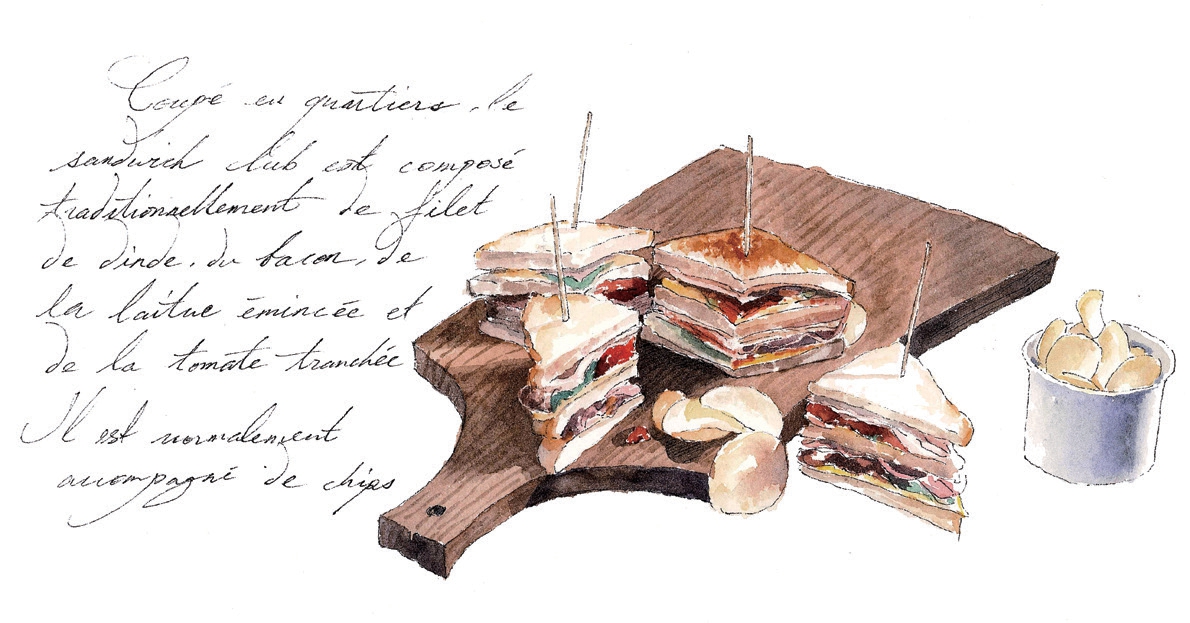 Coupé en quartiers, le
sandwich club est composé
traditionnellement de filet
de dinde, du bacon, de
la laitue émincée et
de la tomate tranchée
Il est normalement
accompagné de chips